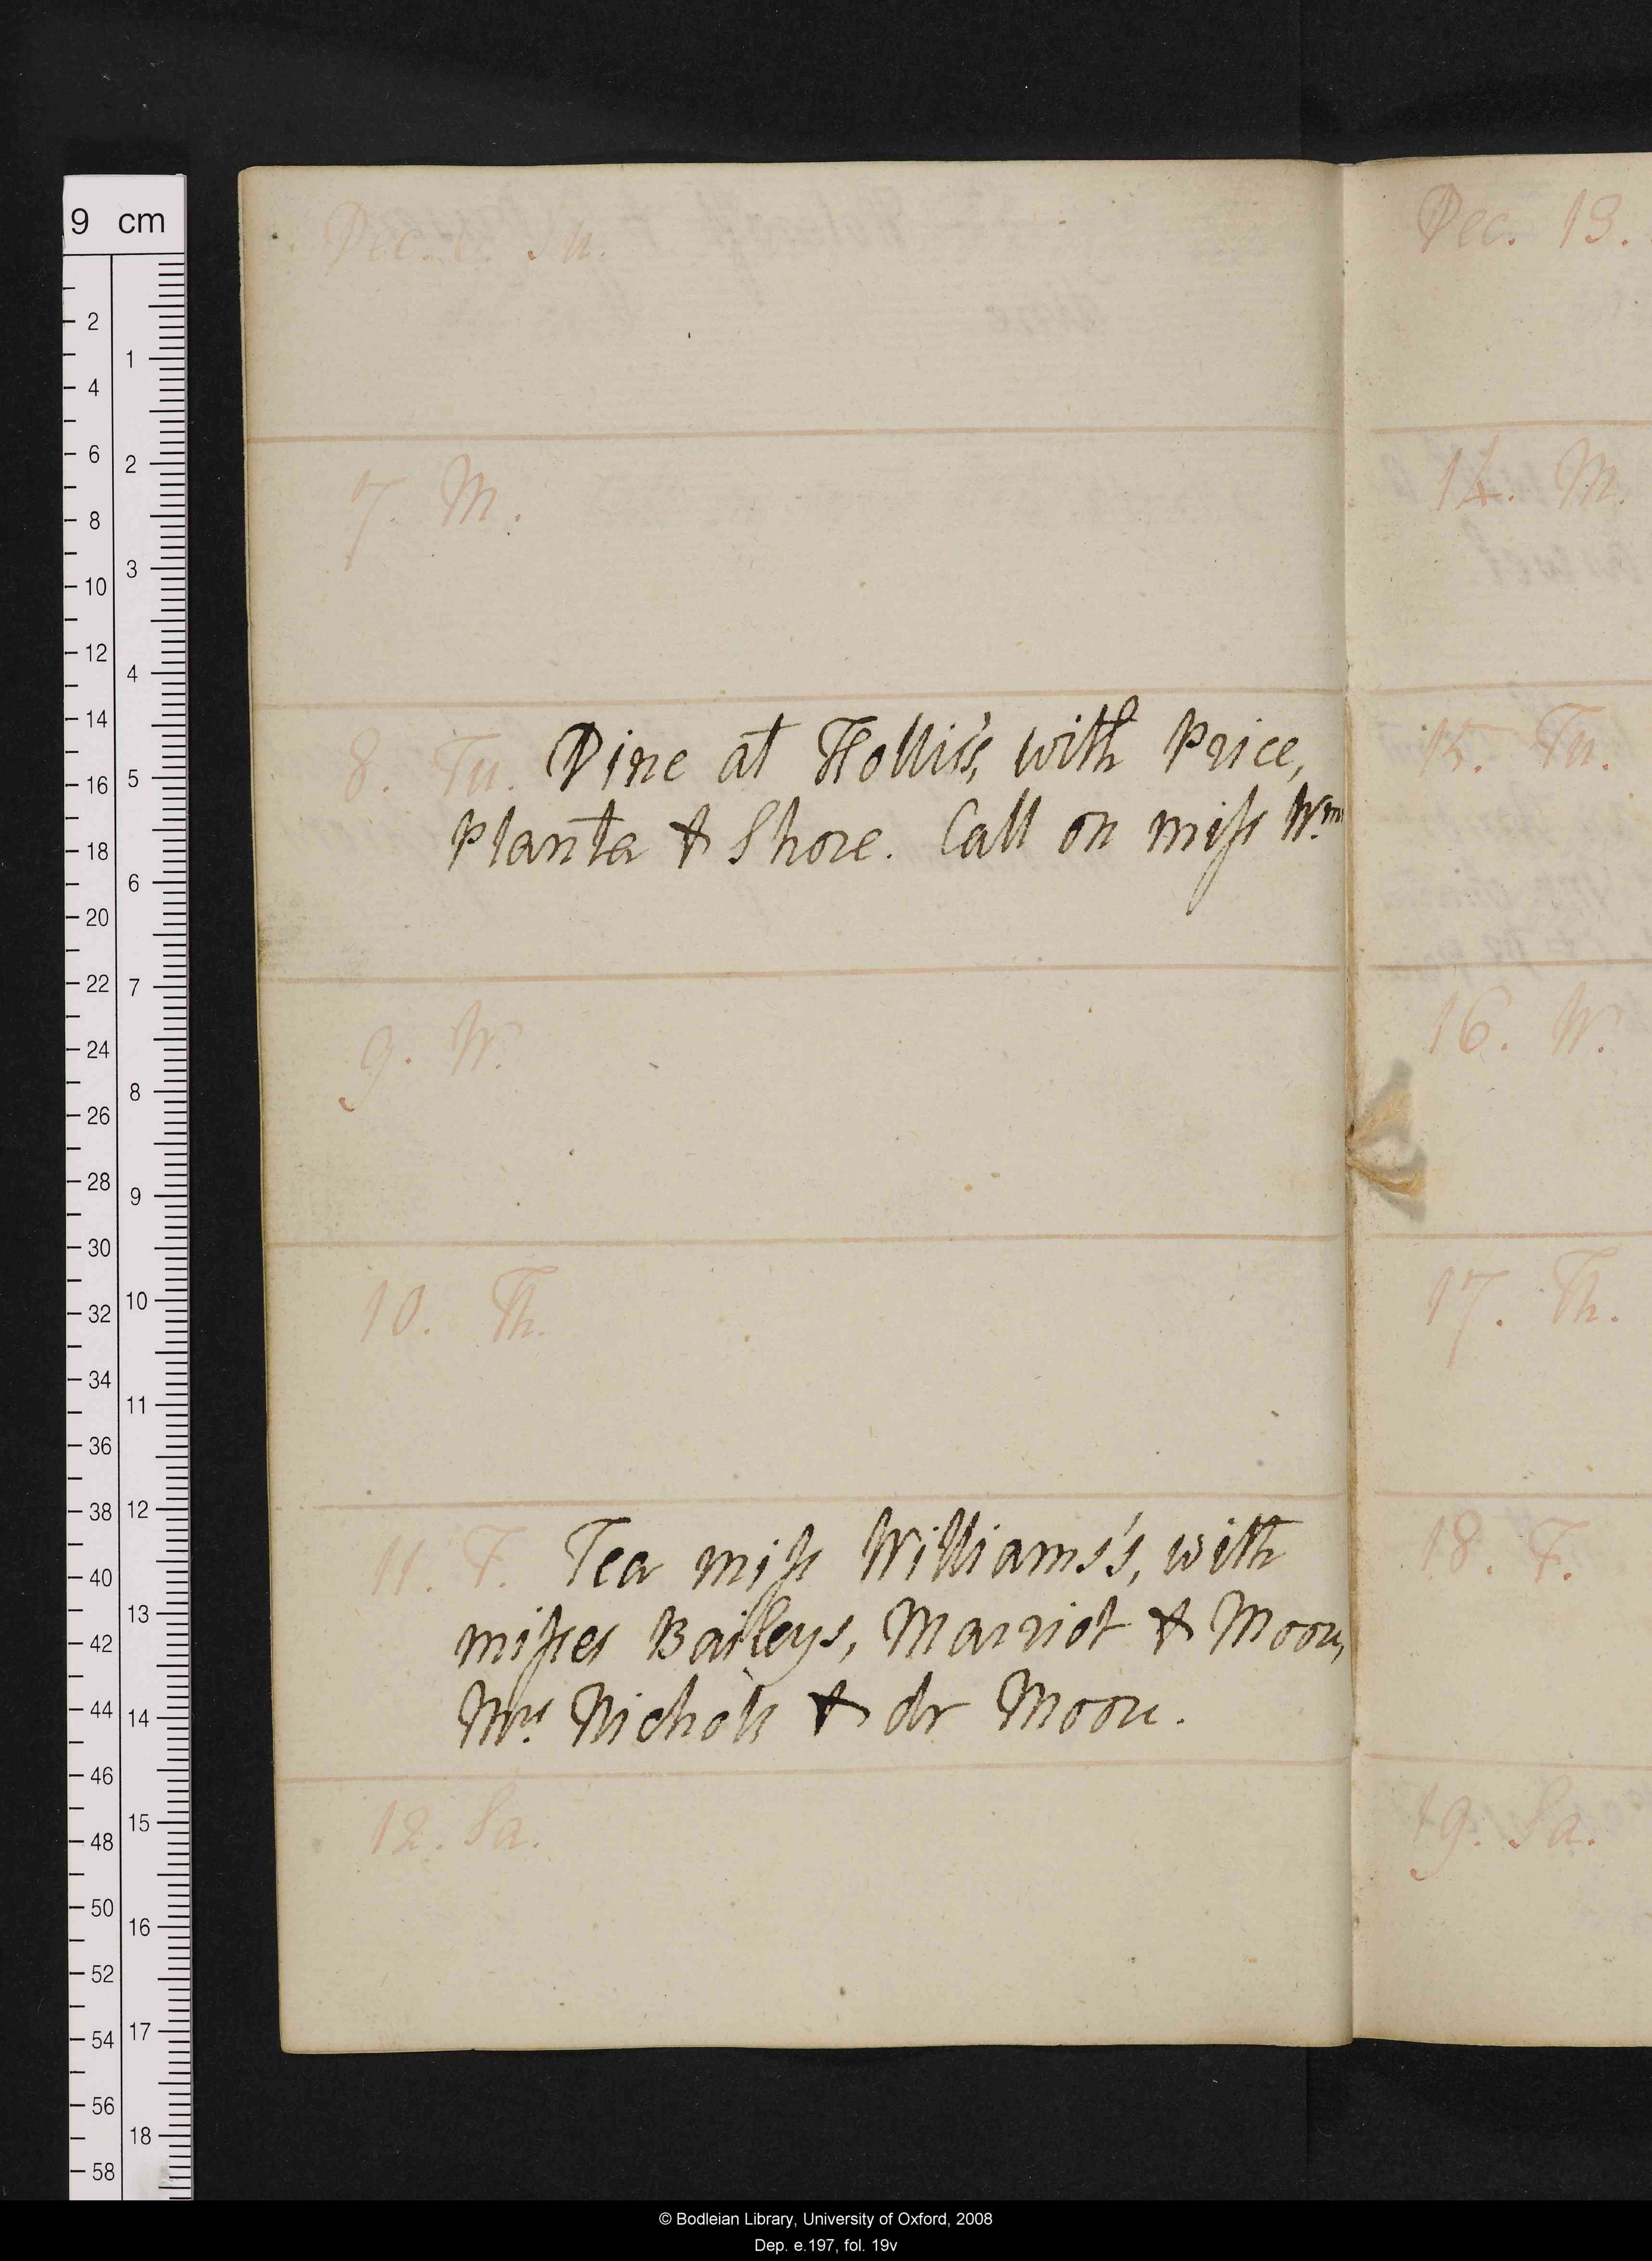 Dec. 6. Su.
7. M.
8. Tu. Dine at Hollis's, with Price,
Planta & Shore. Call on miss Wms
9. W.
10. Th.
11. F. Tea miss Williams's, with
misses Baileys, Marriot & Moore,
Mrs Nichols & dr Moore.
12. Sa.
Dec. 13.
14. M.
15. Tu.
16. W.
17. Th.
18. F.
19. Sa.
9 cm
2
4
6
8
10
12
14
16
18
20
22
24
26
28
30
32
34
36
38
40
42
44
46
48
50
52
54
56
58
1
2
3
4
5
6
7
8
9
10
11
12
13
14
15
16
17
18
© Bodleian Library, University of Oxford, 2008
Dep. e.197, fol. 19v